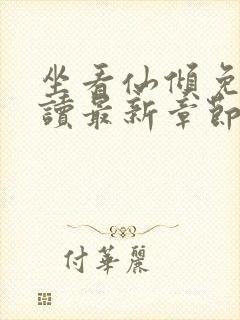 坐看仙傾免
讀最新章節
付華麗